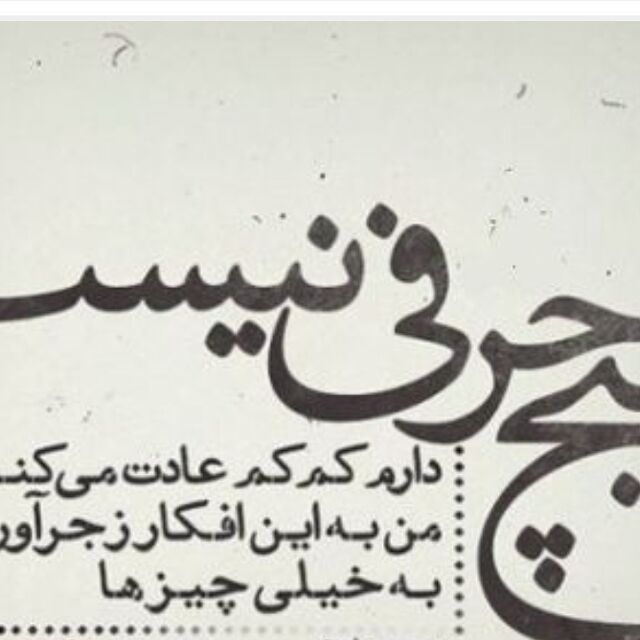 حرفی نیست
دارم کم کم عادت می‌کنـ
من به این افکار زجرآور
به خیلی چیزها